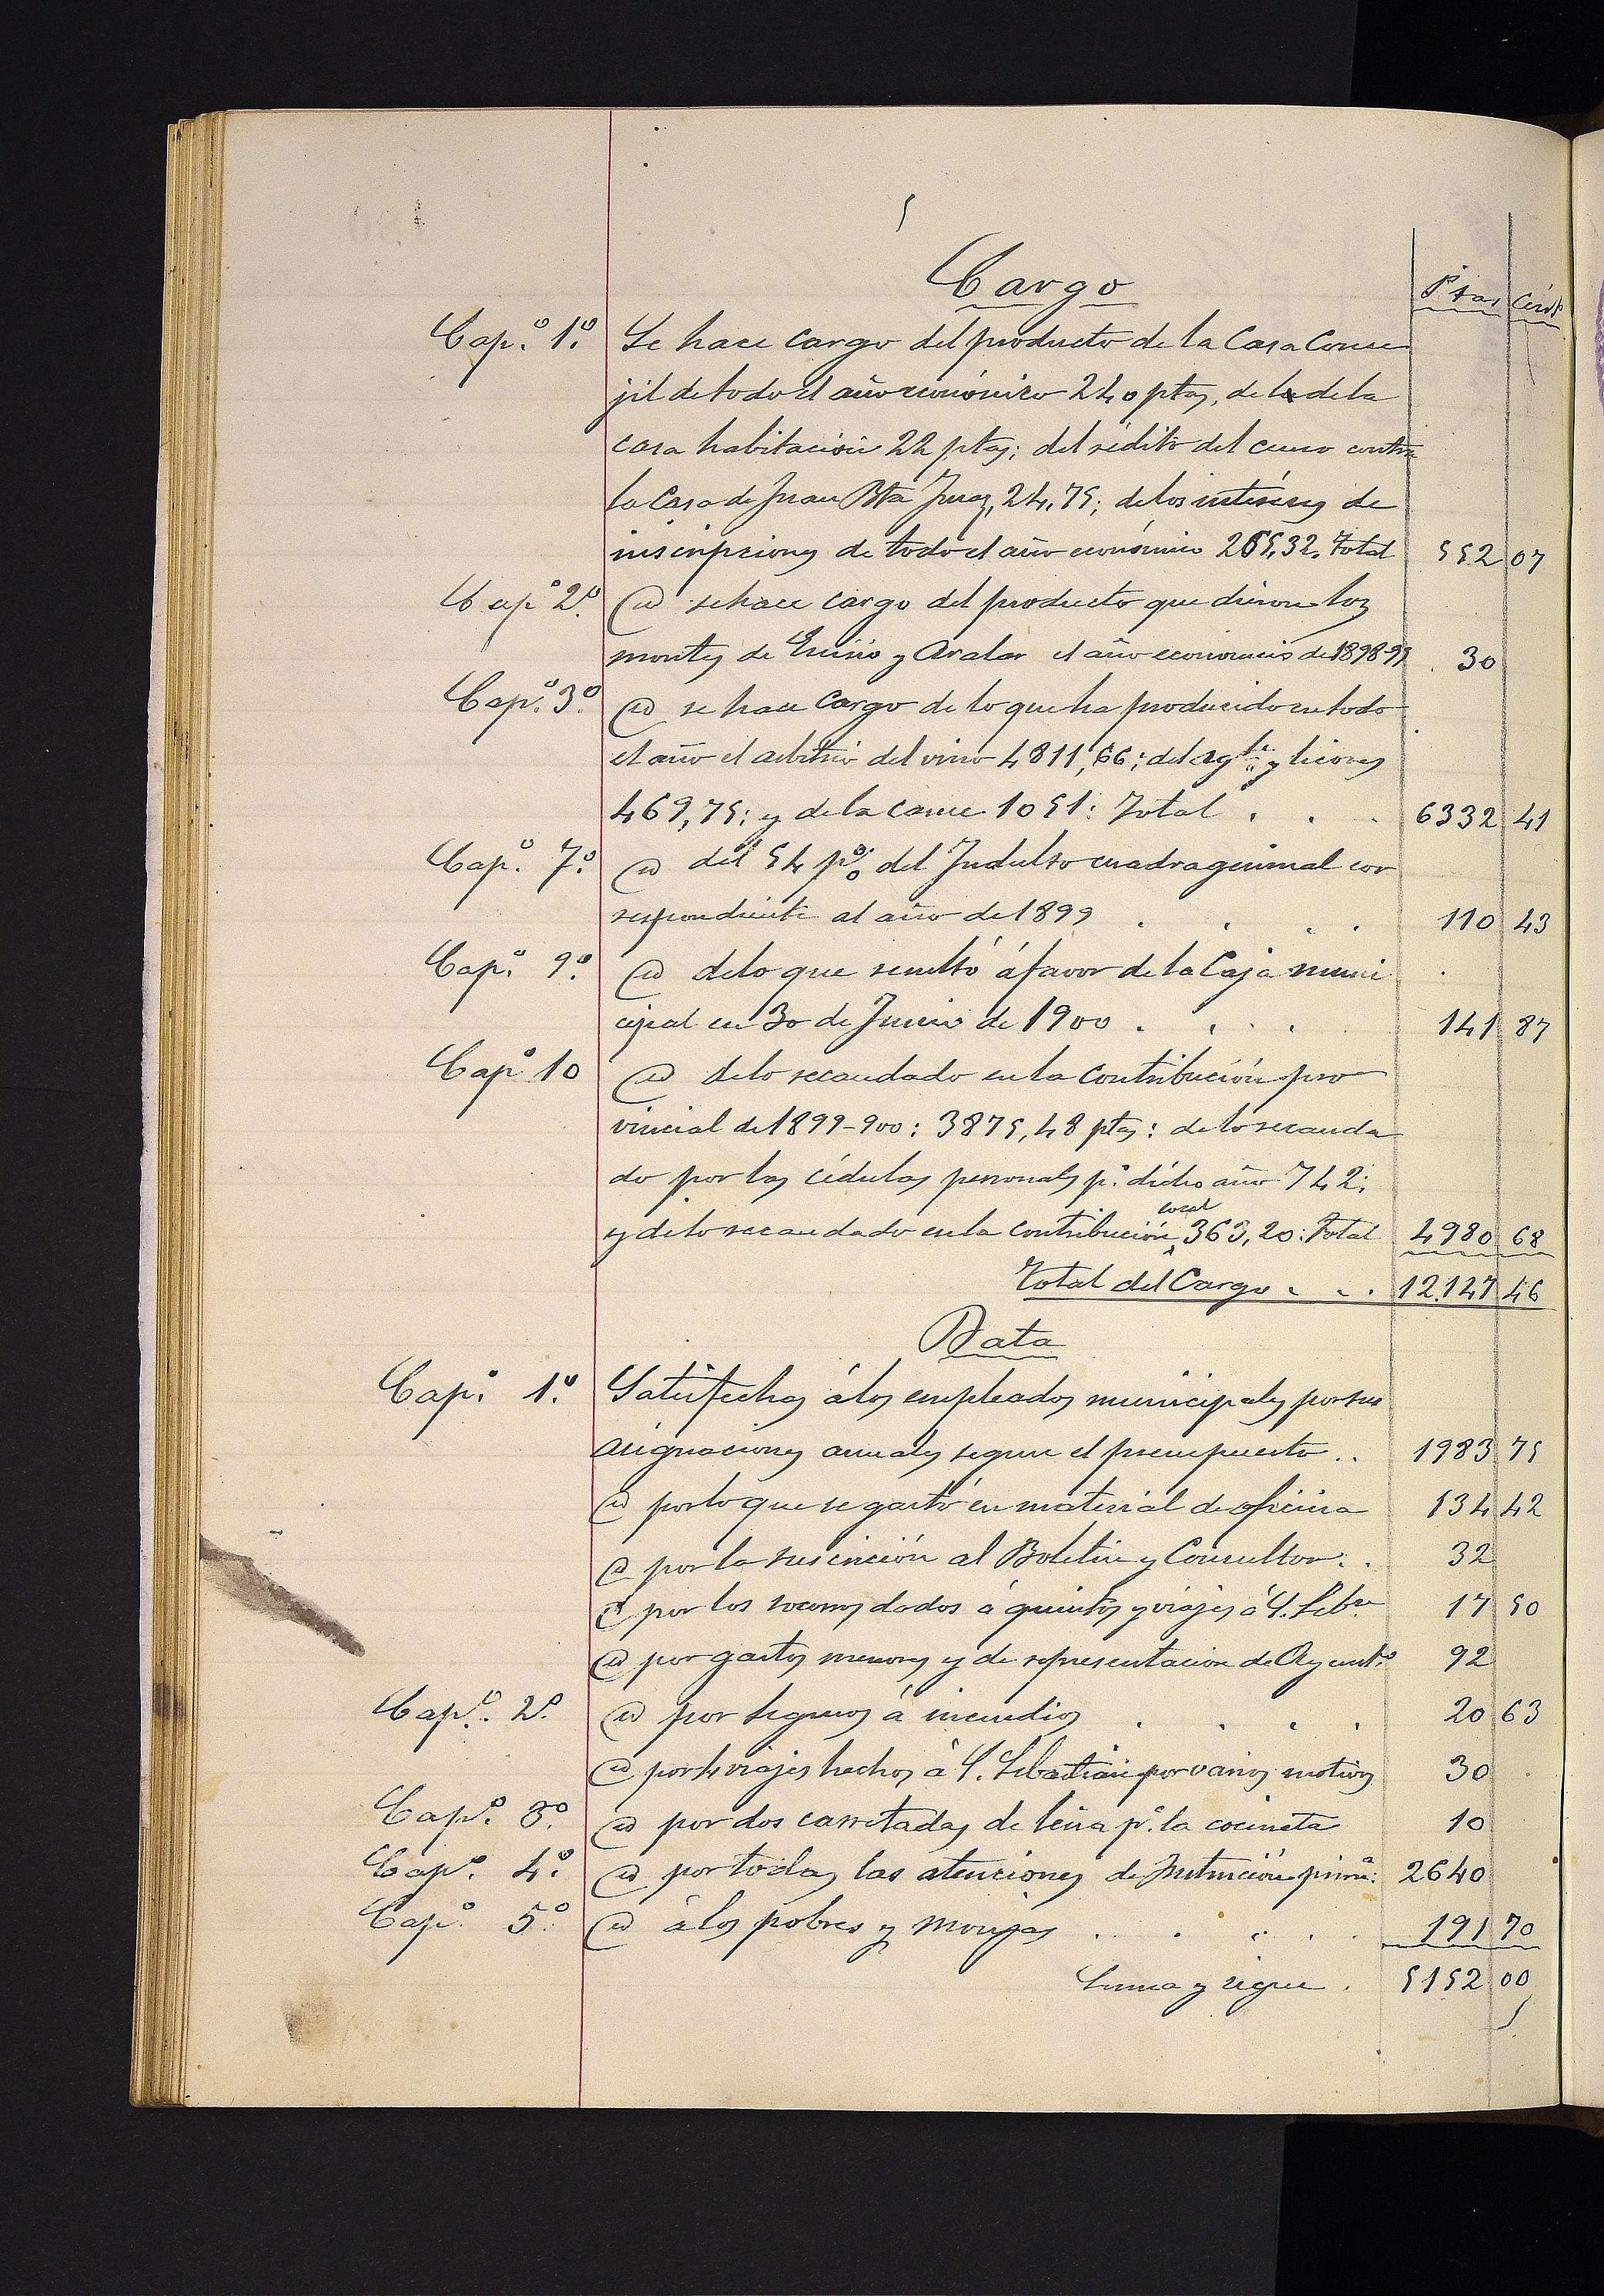 Cargo
Ptas Cénts
Cap.º 1.º Se hace cargo del producto de la Casa Conce
jil de todo el año económico 240 ptas, de la de la
casa habitación 22 ptas; del rédito del censo contra
la Casa de Juan Bta 24,75; de los intéreses de
inscripciones de todo el año económico 265,32. Total 552 07
Cap.º 2.º Id se hace cargo del producto que dieron los
montes de Enirio y Aralar el año economico de 1898-99 30
Cap.º 3.º Id se hace cargo de lo que ha producido en todo
el año el arbitrio del vino 4811,66; del agte y licores
469,75; y de la carne 1051: Total . . . 6332 41
Cap.º 7.º Id del 54 p% del Indulto cuadragesimal cor
respondiente al año de 1899 . . . . 110 43
Cap.º 9.º Id de lo que resultó á favor de la Caja muni
cipal en 30 de Junio de 1900 . . . . 141 87
Cap.º 10 Id de lo recaudado en la contribución pro
vincial de 1899-900: 3875,48 ptas: de lo recauda
do por las cédulas personales p.ª dicho año 742;
y de lo recaudado en la contribución local 363,20: Total 4980 68
Total del Cargo . . . 12.147 46
Data
Cap.º 1.º Satisfechos á los empleados municipales por sus
asignaciones anuales segun el presupuesto . . 1983 75
Id por lo que se gastó en material de oficina 134 42
Id por la suscrición al Boletin y Consultor . . 32
Id por los socorros dados á quintos y viajes á S. Sebn 17 50
Id por gastos menores y de representacion de Ayunt.º 92
Cap.º 2.º Id por seguros á incendios . . . . 20 63
Id por 4 viajes hechos á S. Sebastián por varios motivos 30
Cap.º 3.º Id por dos carretadas de leña p.ª la cocineta 10
Cap.º 4.º Id por todas las atenciones de Instrucción prim.ª: 2640
Cap.º 5.º Id á los pobres y monjas . . . . 191 70
Suma y sigue . 5152 00